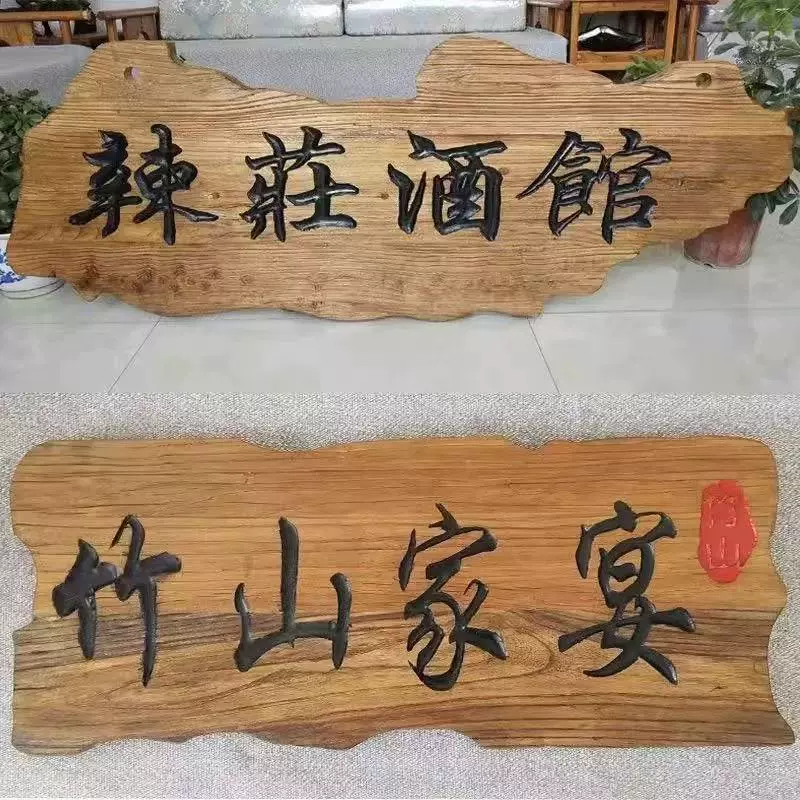 辣莊酒館
竹山家宴
竹山